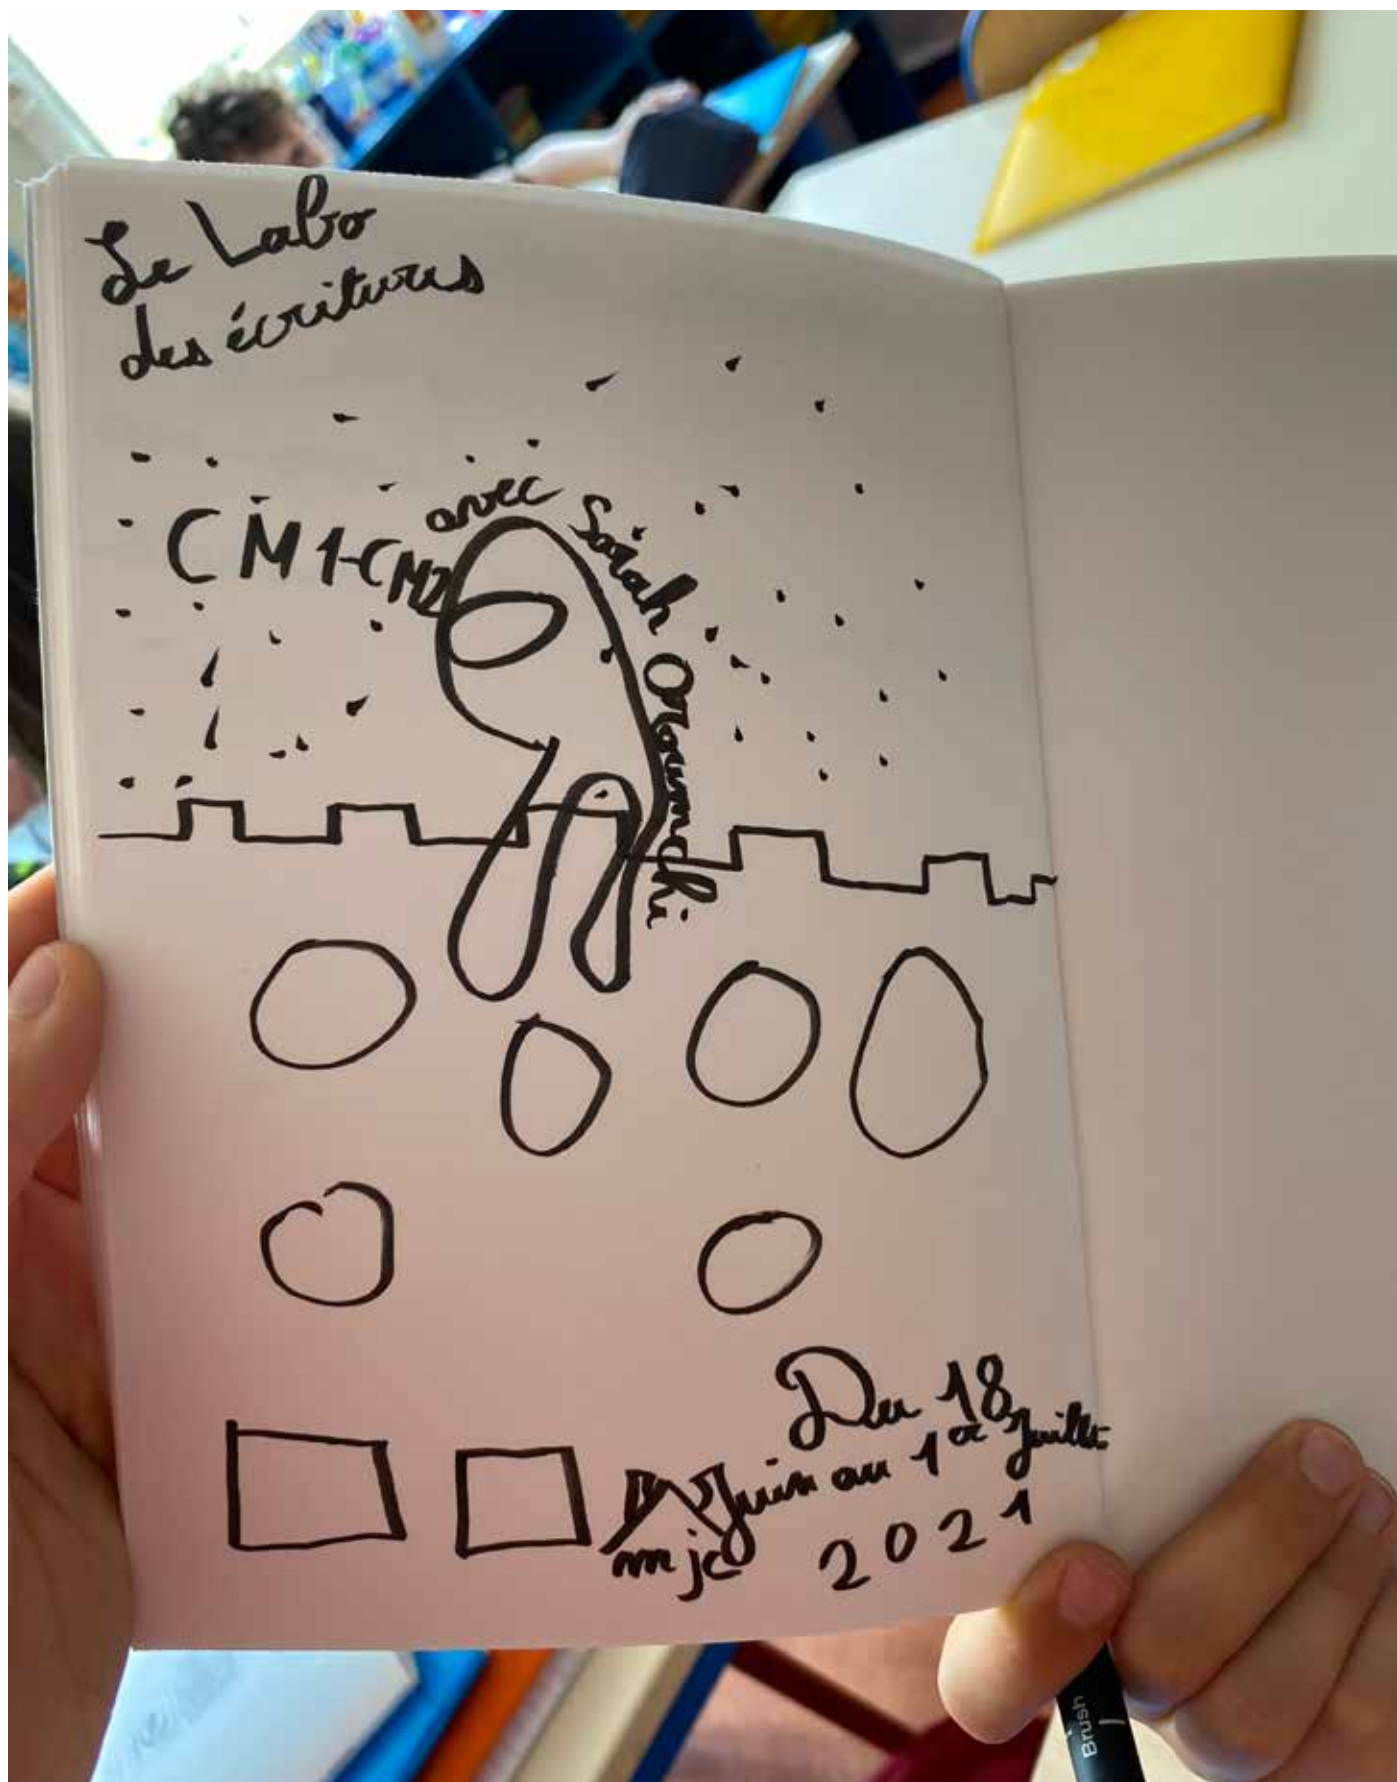 Le Labo
des écritures
CM1-CM2
avec Sarah
mjc
Du 18
Juin au 1er Juillet
2021
Brush